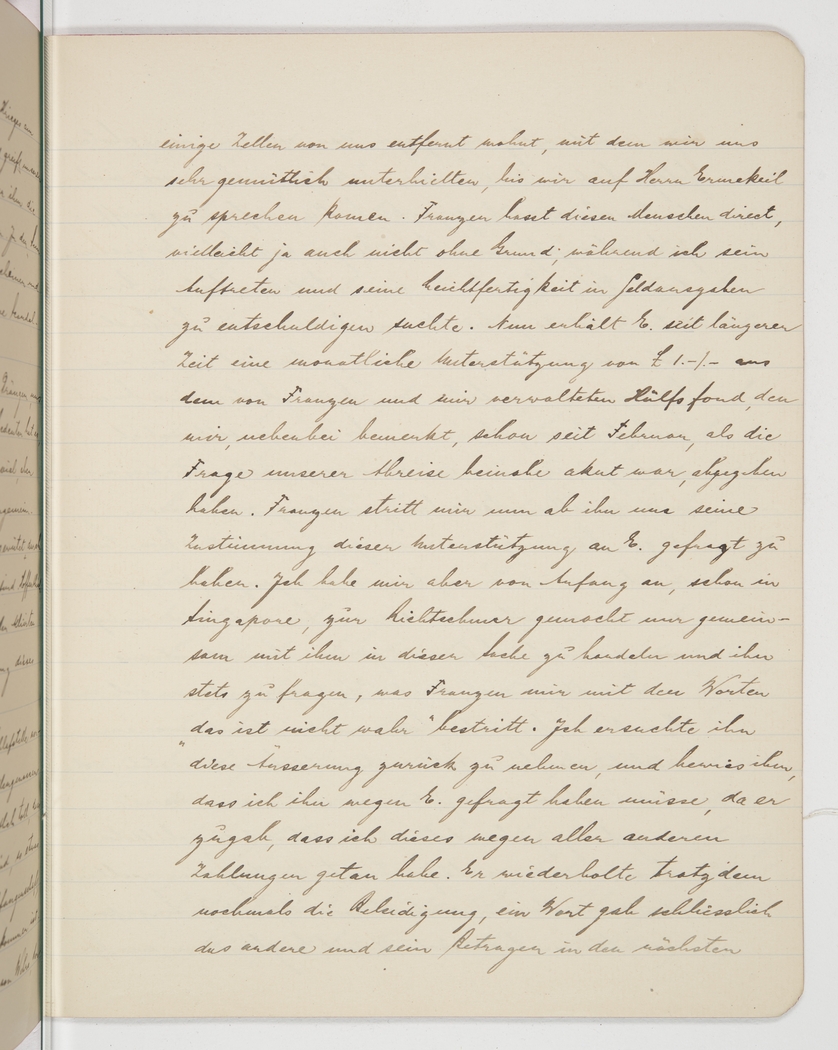 einige Zellen von uns entfernt wohnt, mit dem wir uns
sehr gemütlich unterhielten, bis wir auf Herrn Ermekeil
zu sprechen kamen. Franzen hasst diesen Menschen direct,
vielleicht ja auch nicht ohne Grund; während ich sein
Auftreten und seine Leichtfertigkeit in Geldausgaben
zu entschuldigen suchte. Nun erhält E. seit längerer
Zeit eine monatliche Unterstützung von £ 1.-/- aus
dem von Franzen und mir verwalteten Hülfsfond, den
wir, nebenbei bemerkt, schon seit Februar, als die
Frage unserer Abreise beinahe akut war, abgegeben
haben. Franzen stritt mir nun ab ihn um seine
Zustimmung dieser Unterstützung an E. gefragt zu
haben. Ich habe mir aber von Anfang an, schon in
Singapore, zur Richtschnur gemacht nur gemein-
sam mit ihm in dieser Sache zu handeln und ihn
stets zu fragen, was Franzen mir mit den Worten
"das ist nicht wahr" bestritt. Ich ersuchte ihn
diese Äusserung zurück zu nehmen, und bewies ihm,
dass ich ihn wegen E. gefragt haben müsse, da er
zugab, dass ich dieses wegen aller anderen
Zahlungen getan habe. Er wiederholte trotzdem
nochmals die Beleidigung, ein Wort gab schliesslich
das andere und sein Betragen in den nächsten